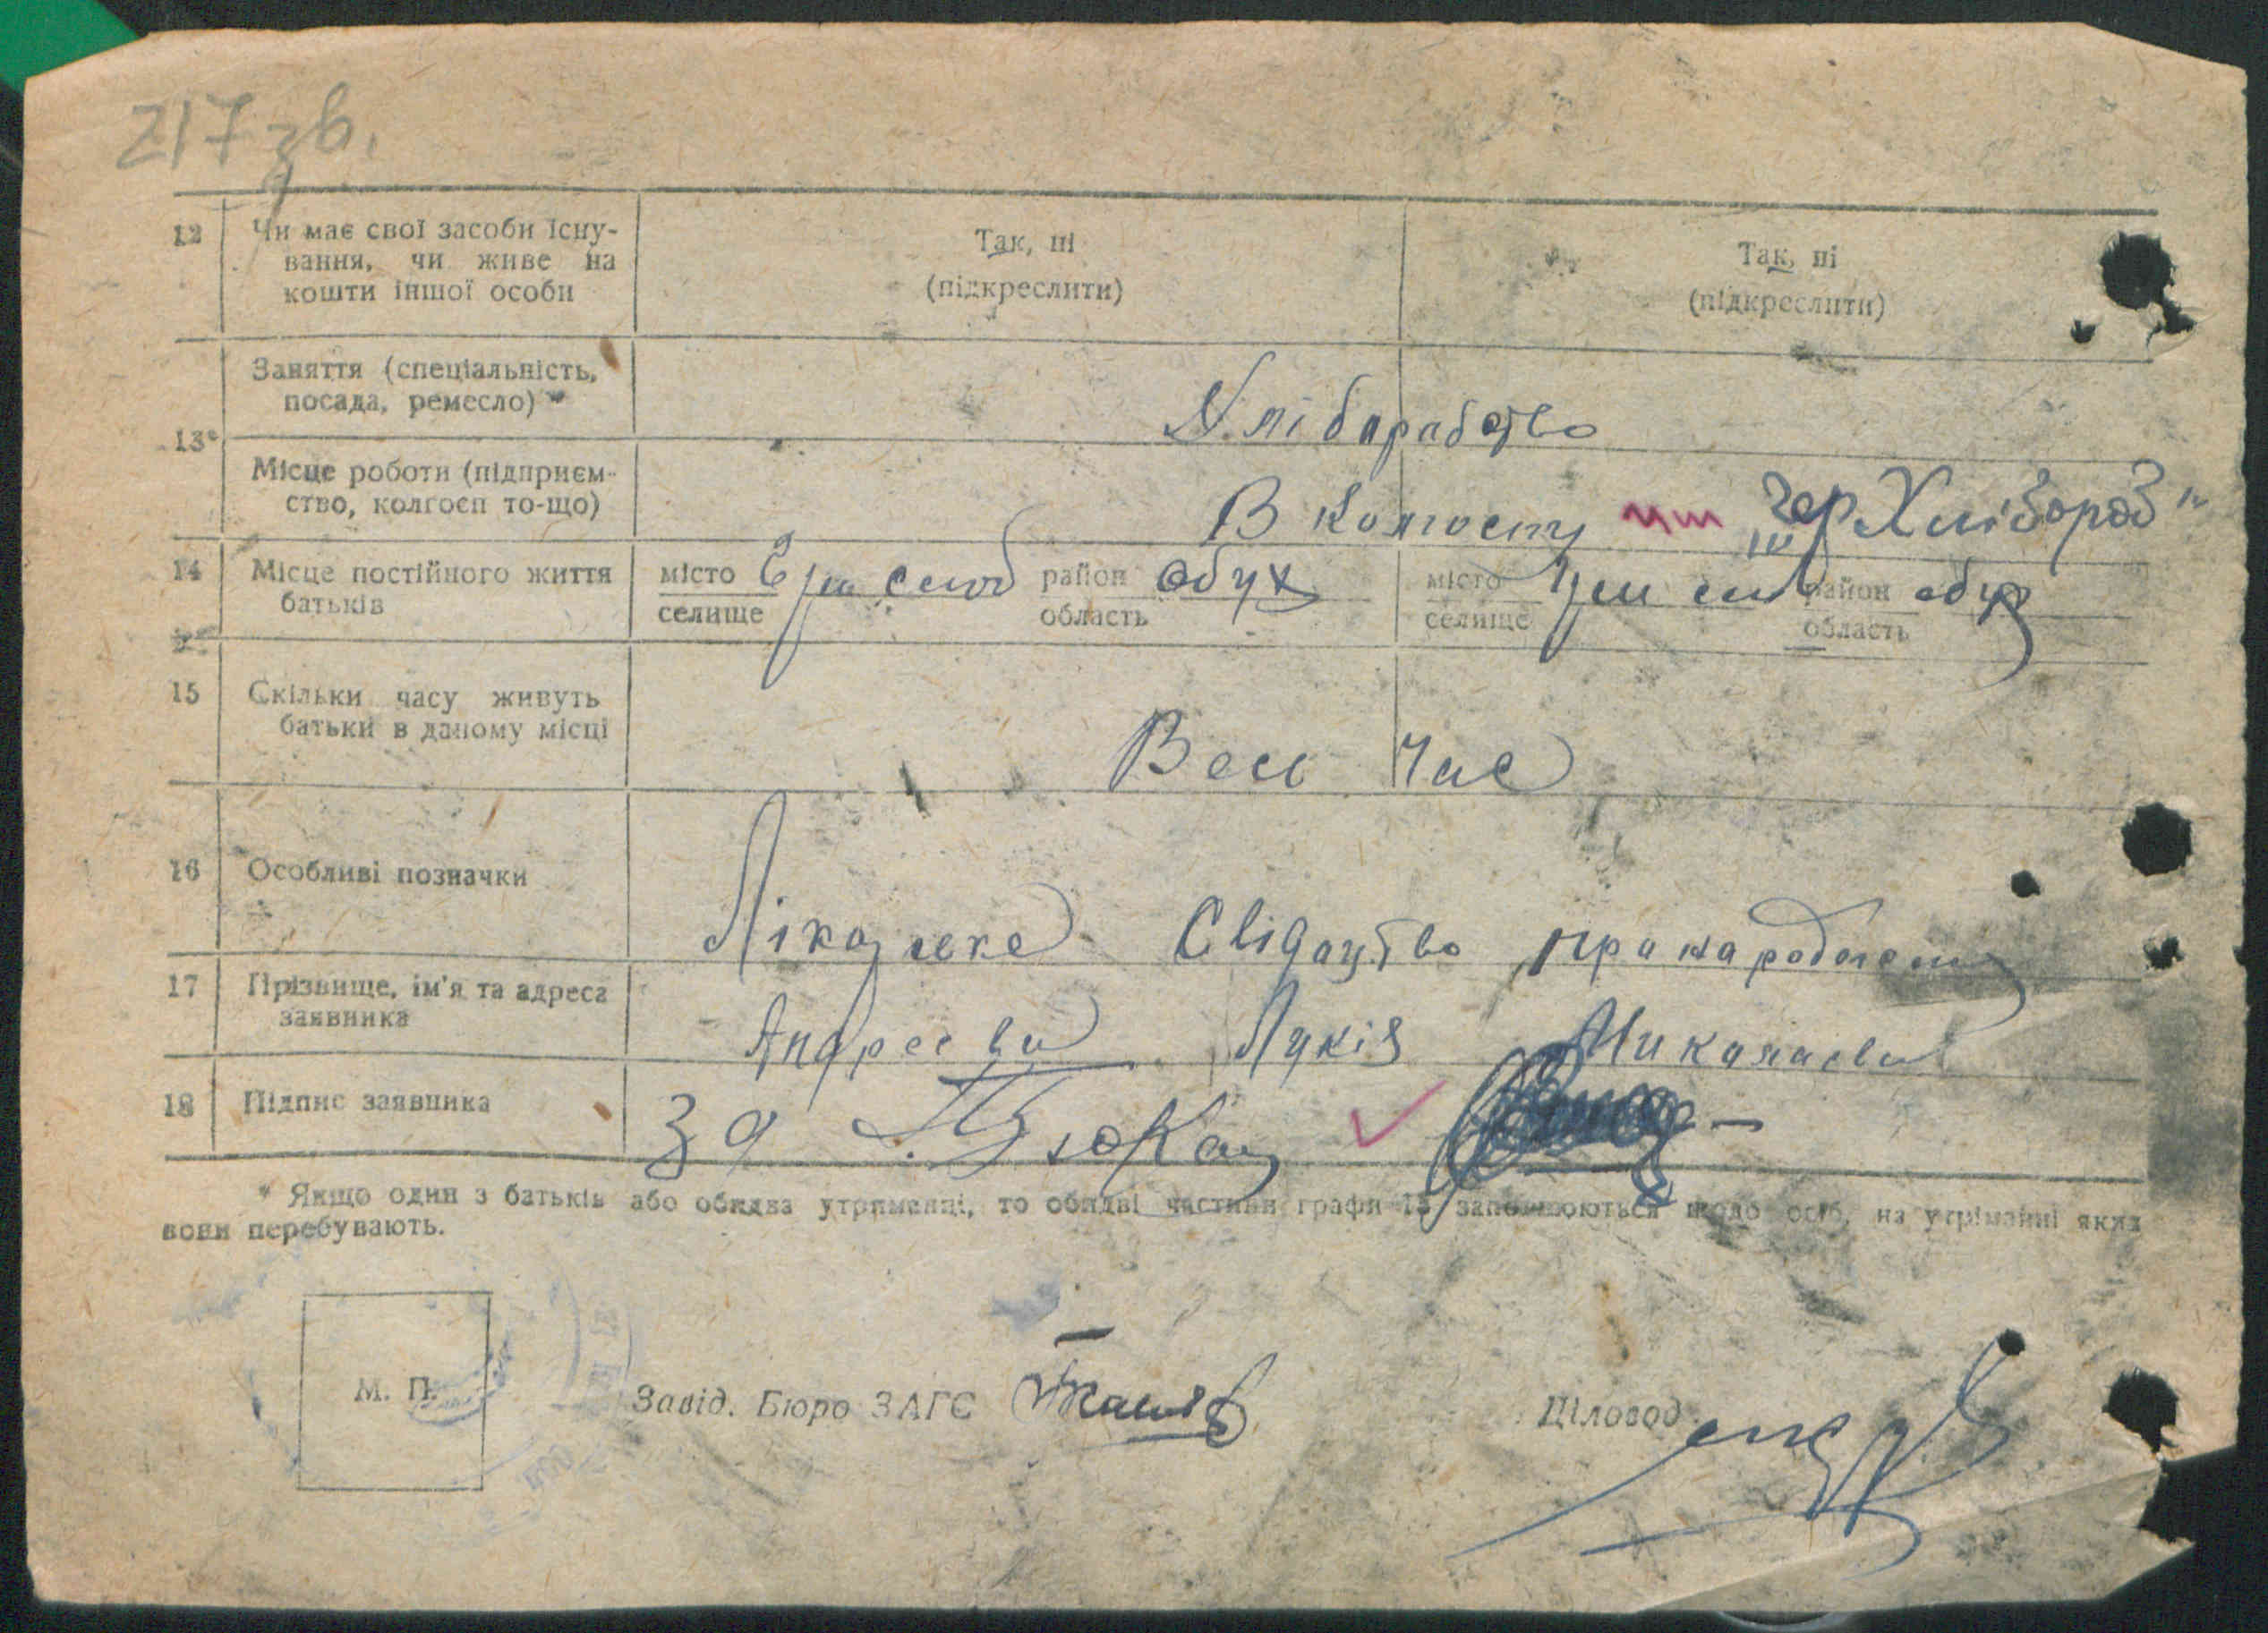 217 зв.
12 Чи має свої засоби існу-
вання, чи живе на
кошти іншої особи
Так, ні
(підкреслити)
Так, ні
(підкреслити)
13* Заняття (спеціальність,
посада, ремесло)
Хлібарабство
Місце роботи (підприєм-
ство, колгосп то-що)
В колгоспу „Чер Хлібороб"
14 Місце постійного життя
батьків
місто
селище
район Обух
область
місто
селище
район обух
область
15 Скільки часу живуть
батьки в даному місці
Весь час
16 Особливі позначки
Лікарське Свідоцтво пра народження
17 Прізвище, ім'я та адреса
заявника
Андреєва Лукія Микалаєвна
18 Підпис заявника
За
* Якщо один з батьків або обидва утриманці, то обидві частини графи 13 заповнюються щодо осіб, на утріманні яких
вони перебувають.
М. П.
Завід. Бюро ЗАГС
Діловод